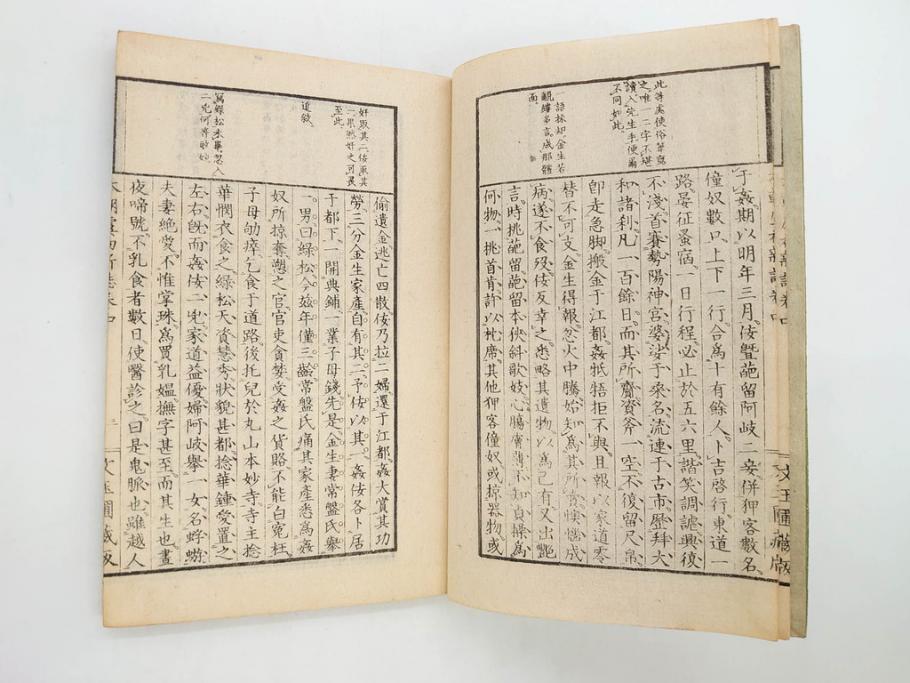 此等處使俗筆寫
之唯一二字不堪
讀入先生手便爾
不同如此
一語抹却金生若
覼縷多言成那體
面
于姦期以明年三月侒暨葩留阿岐二妾併狎客數名
僮奴數口上下一行合爲十有餘人卜吉啓行東道一
路晷征蚤宿一日行程必止於五六里諧笑調謔興復
不淺首賽勢陽神宮婆娑于來名流連于古市歷拜大
和諸刹凡一百餘日而其所齎資斧一空不復留尺帛
卽走急脚搬金于江都姦牴牾拒不與且報以家道零
替不可支金生得報忽火中騰始知爲其所賣懊惱成
病遂不食歿侒友幸之悉略其遺物以爲己有又出艷
言時挑葩留葩留本俠斜歌妓心膓膚薄不知貞操爲
何物一挑首肯許以枕席其他狎客僮奴或掠器物或
文玉圃藏版
奸取其二侒厭其
一果然奸之可畏
至此
追敍
寫綠松未畢忽入
二兇何等敏妙
偷遺金逃亡四散侒乃拉二婦還于江都姦大賞其功
勞三分金生家產自有其二予侒以其一姦侒各卜居
于都下一開典鋪一業子母錢先是金生妻常盤氏舉
一男曰綠松今玆年僅三齡常盤氏痛其家產悉爲姦
奴所掠奪愬之官官吏貪婪受姦之貨賂不能白寃枉
子母劬瘁乞食于道路後托兒於丸山本妙寺寺主捻
華憫衣食之綠松天資慧秀狀貌甚都捻華鍾愛置之
左右旣而姦侒二兇家道益優婦阿岐舉一女名蜉蝣
夫妻絶愛不惟掌珠爲買乳媼撫字甚至而其生也晝
夜啼號不乳食者數日使醫診之曰是鬼脈也雖越人
本朝虞初新誌卷中
文玉圃藏版